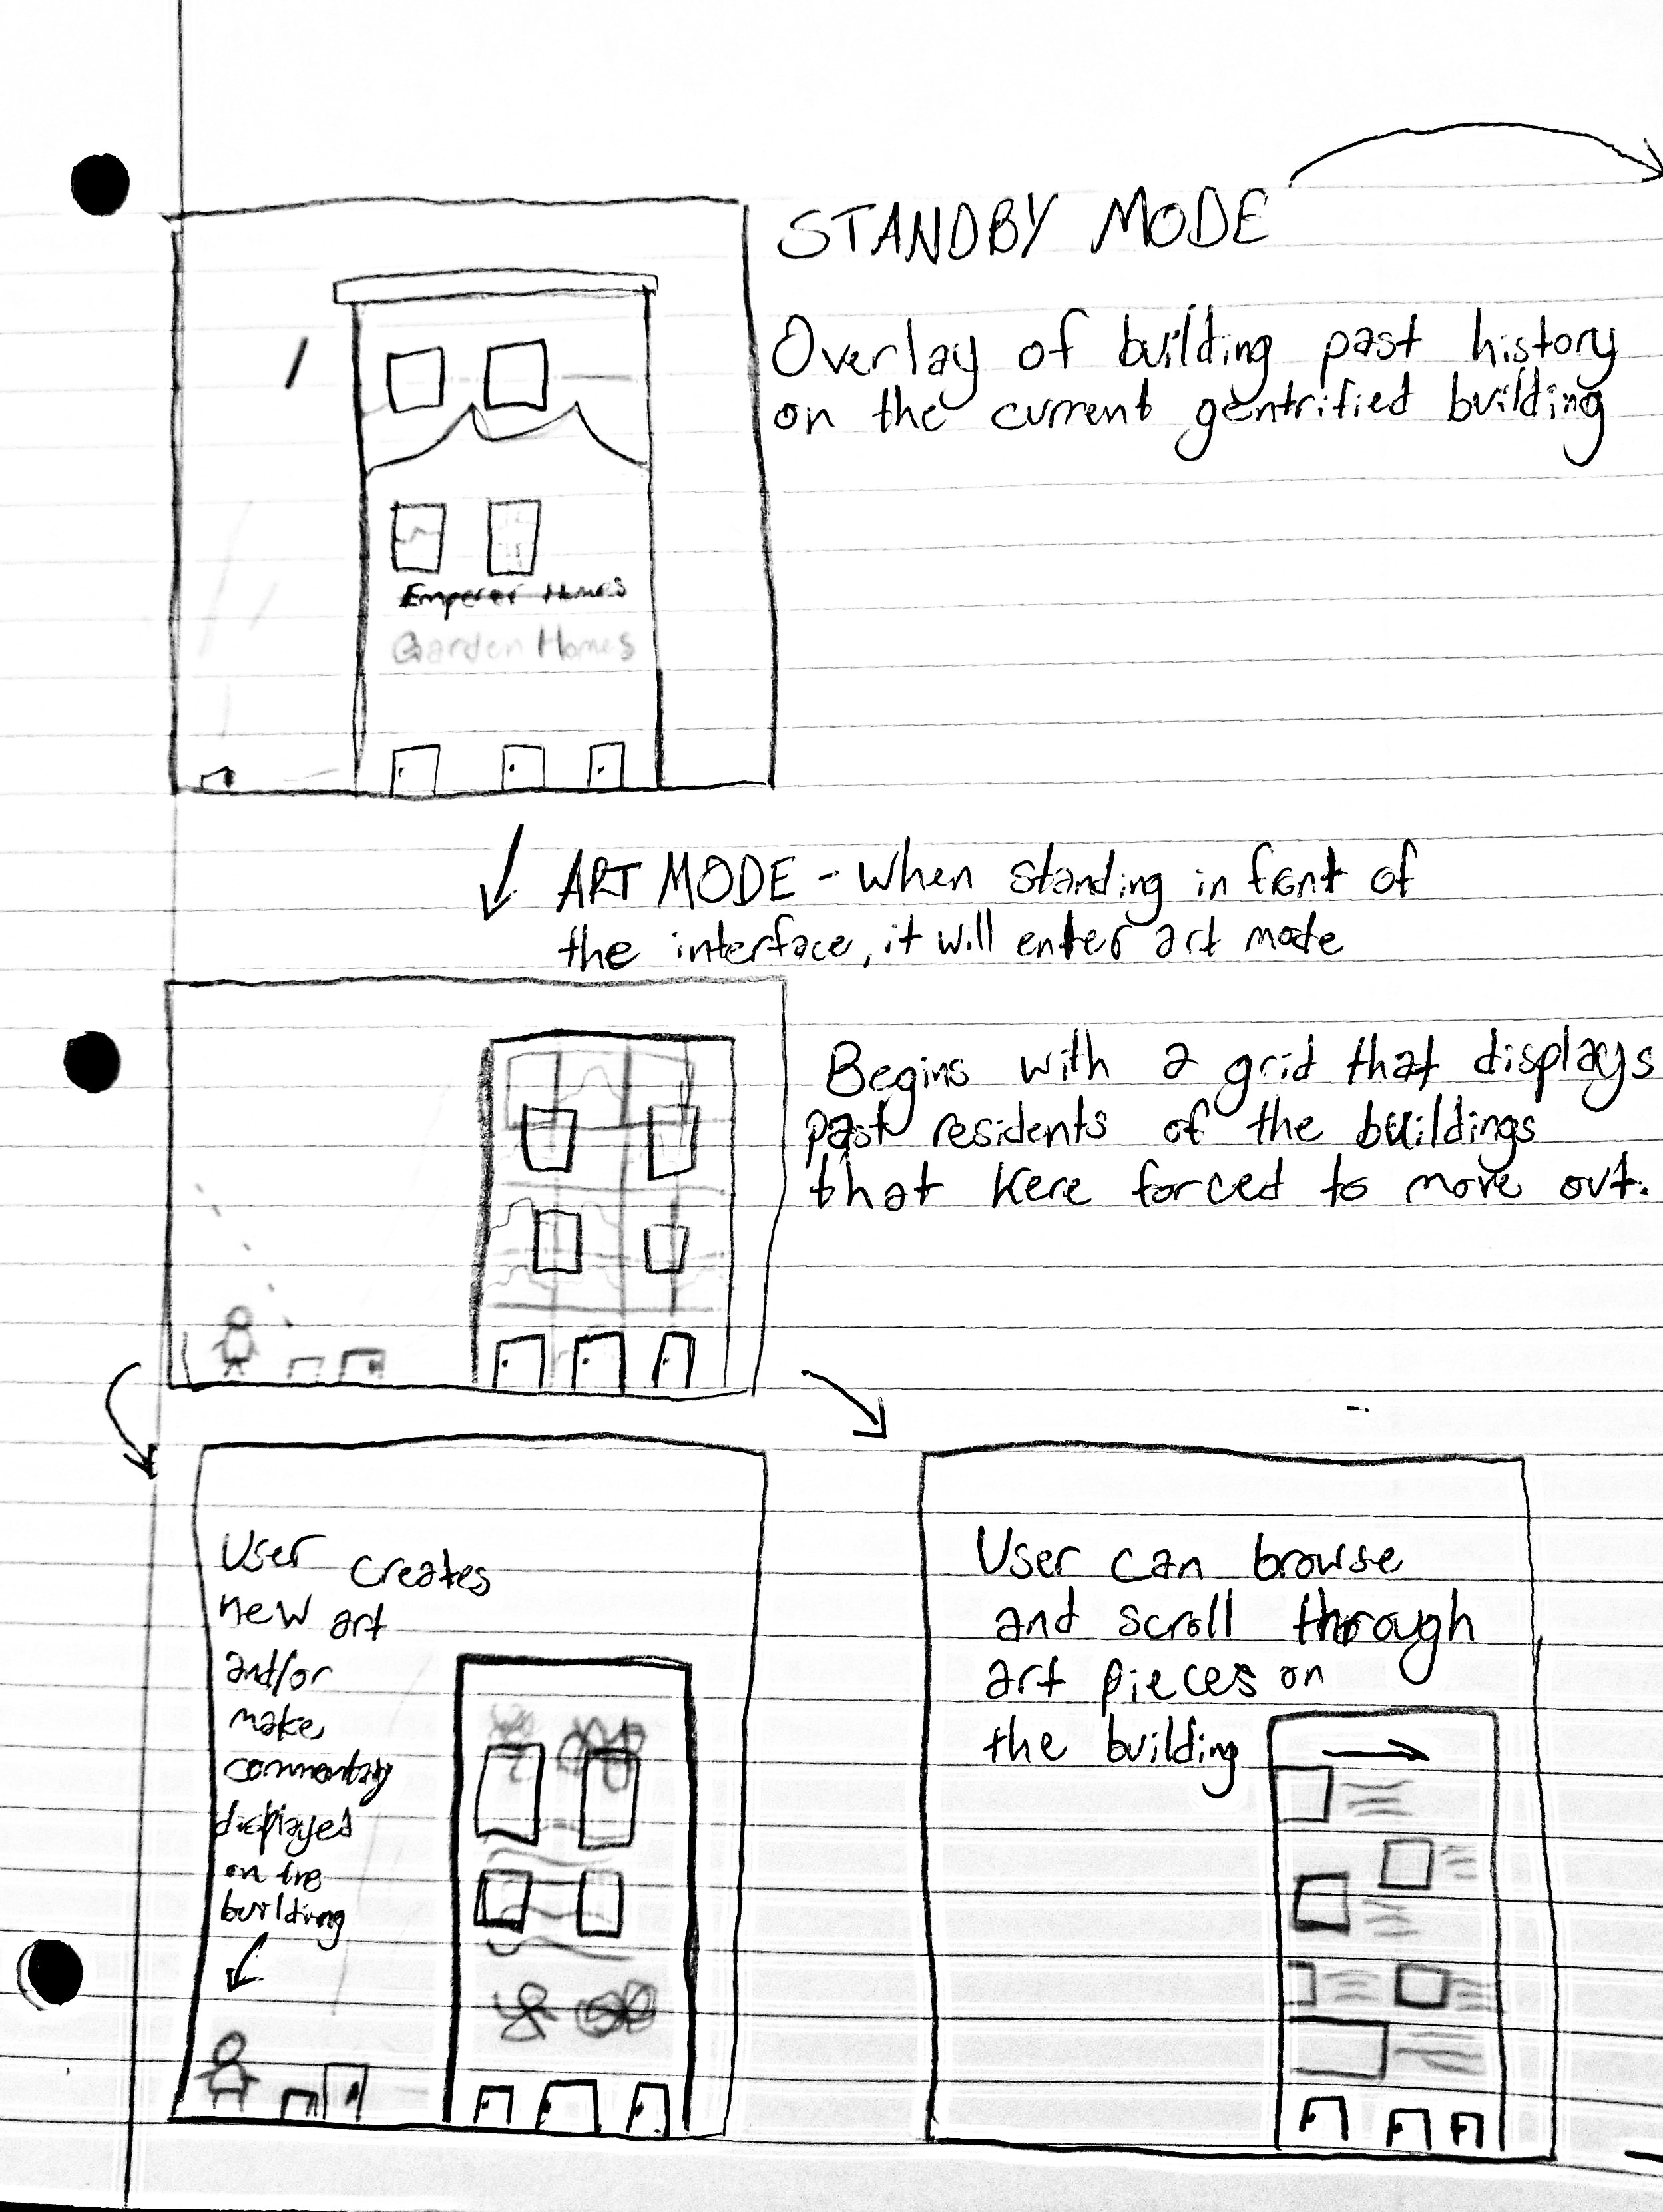 STANDBY MODE
Overlay of building past history
on the current gentrified building
Emperor Homes
Garden Homes
ART MODE - When standing in front of
the interface, it will enter art mode
Begins with a grid that displays
past residents of the buildings
that were forced to move out.
User creates
new art
and/or
make
commentary
displayed
on the
building
User can browse
and scroll through
art pieces on
the building